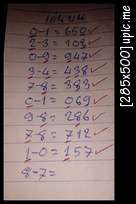 0-1=650
2-3=108
0-9=947
3-4=438
7-8=383
0-1=069
9-8=286
7-8=712
1-0=157
8-7=
[285x500]upic.me